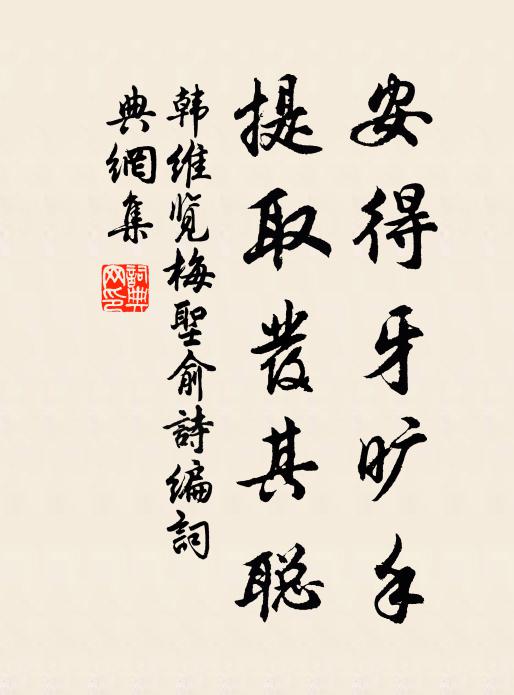 安得牙旷手
提取发其聪
韩维览梅聖俞詩编詞
典網集
詞典網印